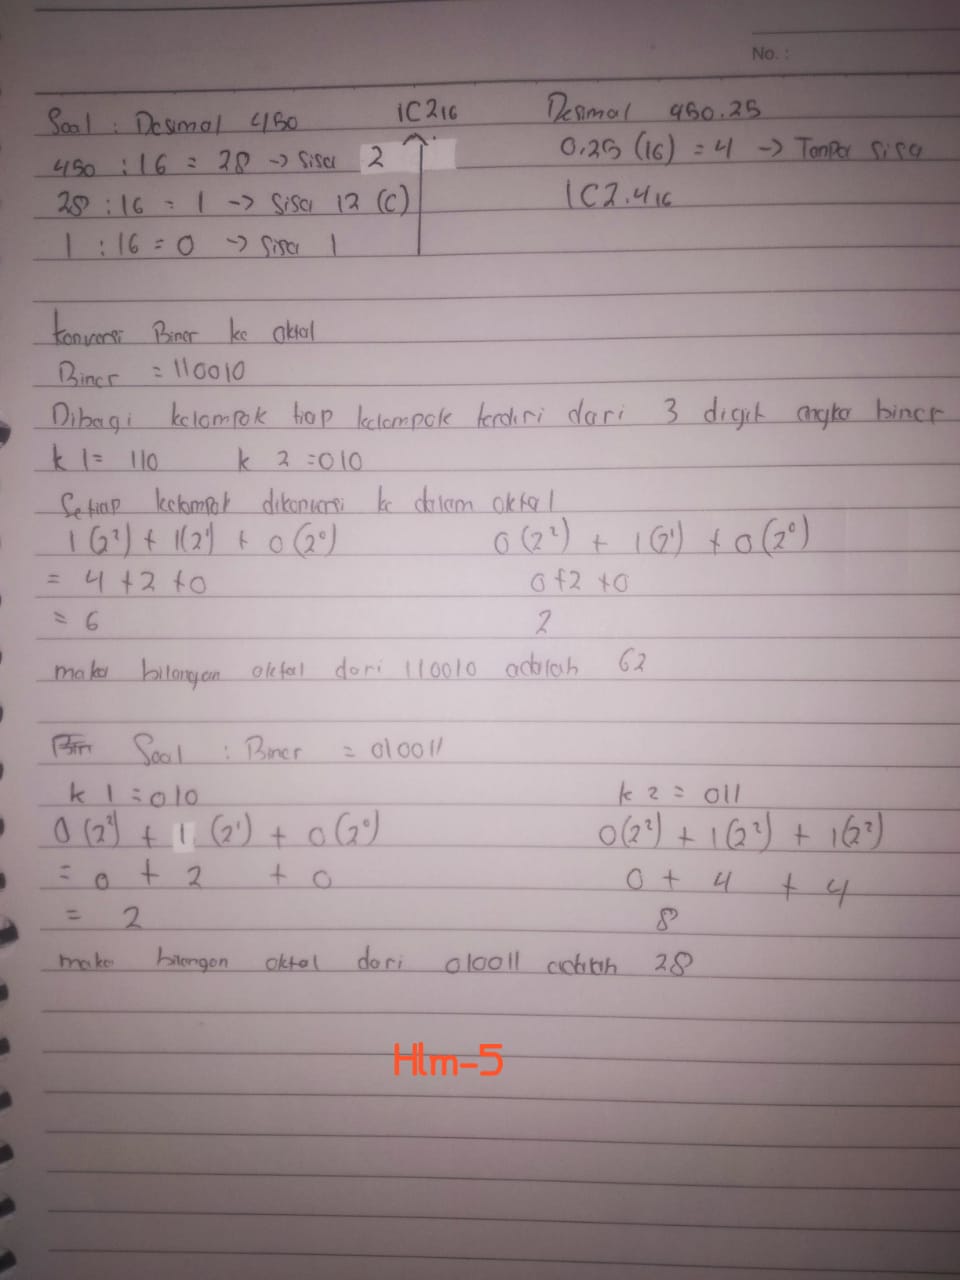 No. :
Soal : Desimal 450 1C2₁₆ Desimal 450.25
450 : 16 = 28 -> Sisa 2 0.25 (16) = 4 -> Tanpa sisa
28 : 16 = 1 -> Sisa 12 (C) 1C2.4₁₆
1 : 16 = 0 -> Sisa 1
konversi Biner ke oktal
Biner = 110010
Dibagi kelompok tiap kelompok terdiri dari 3 digit angka biner
k 1 = 110 k 2 = 010
Setiap kelompok dikonversi ke dalam oktal
1 (2²) + 1(2¹) + 0 (2⁰) 0 (2²) + 1 (2¹) + 0 (2⁰)
= 4 + 2 + 0 0 + 2 + 0
= 6 2
maka bilangan oktal dari 110010 adalah 62
Soal : Biner = 010011
k 1 = 010 k 2 = 011
0 (2²) + 1 (2¹) + 0 (2⁰) 0(2²) + 1(2²) + 1(2²)
= 0 + 2 + 0 0 + 4 + 4
= 2 8
maka bilangan oktal dari 010011 adalah 28
Hlm-5